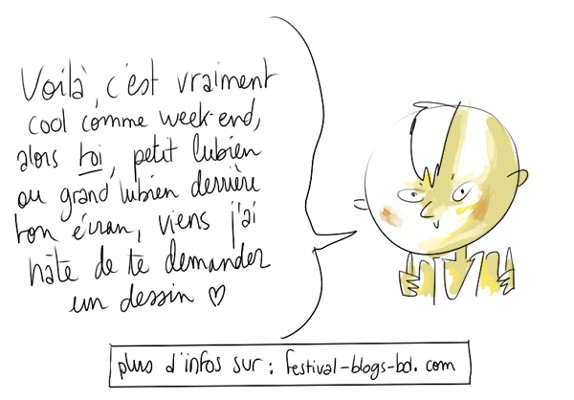 Voilà, c'est vraiment
cool comme week-end,
alors toi, petit lubien
ou grand lubien derrière
ton écran, viens j'ai
hâte de te demander
un dessin ♡
plus d'infos sur : festival-blogs-bd.com